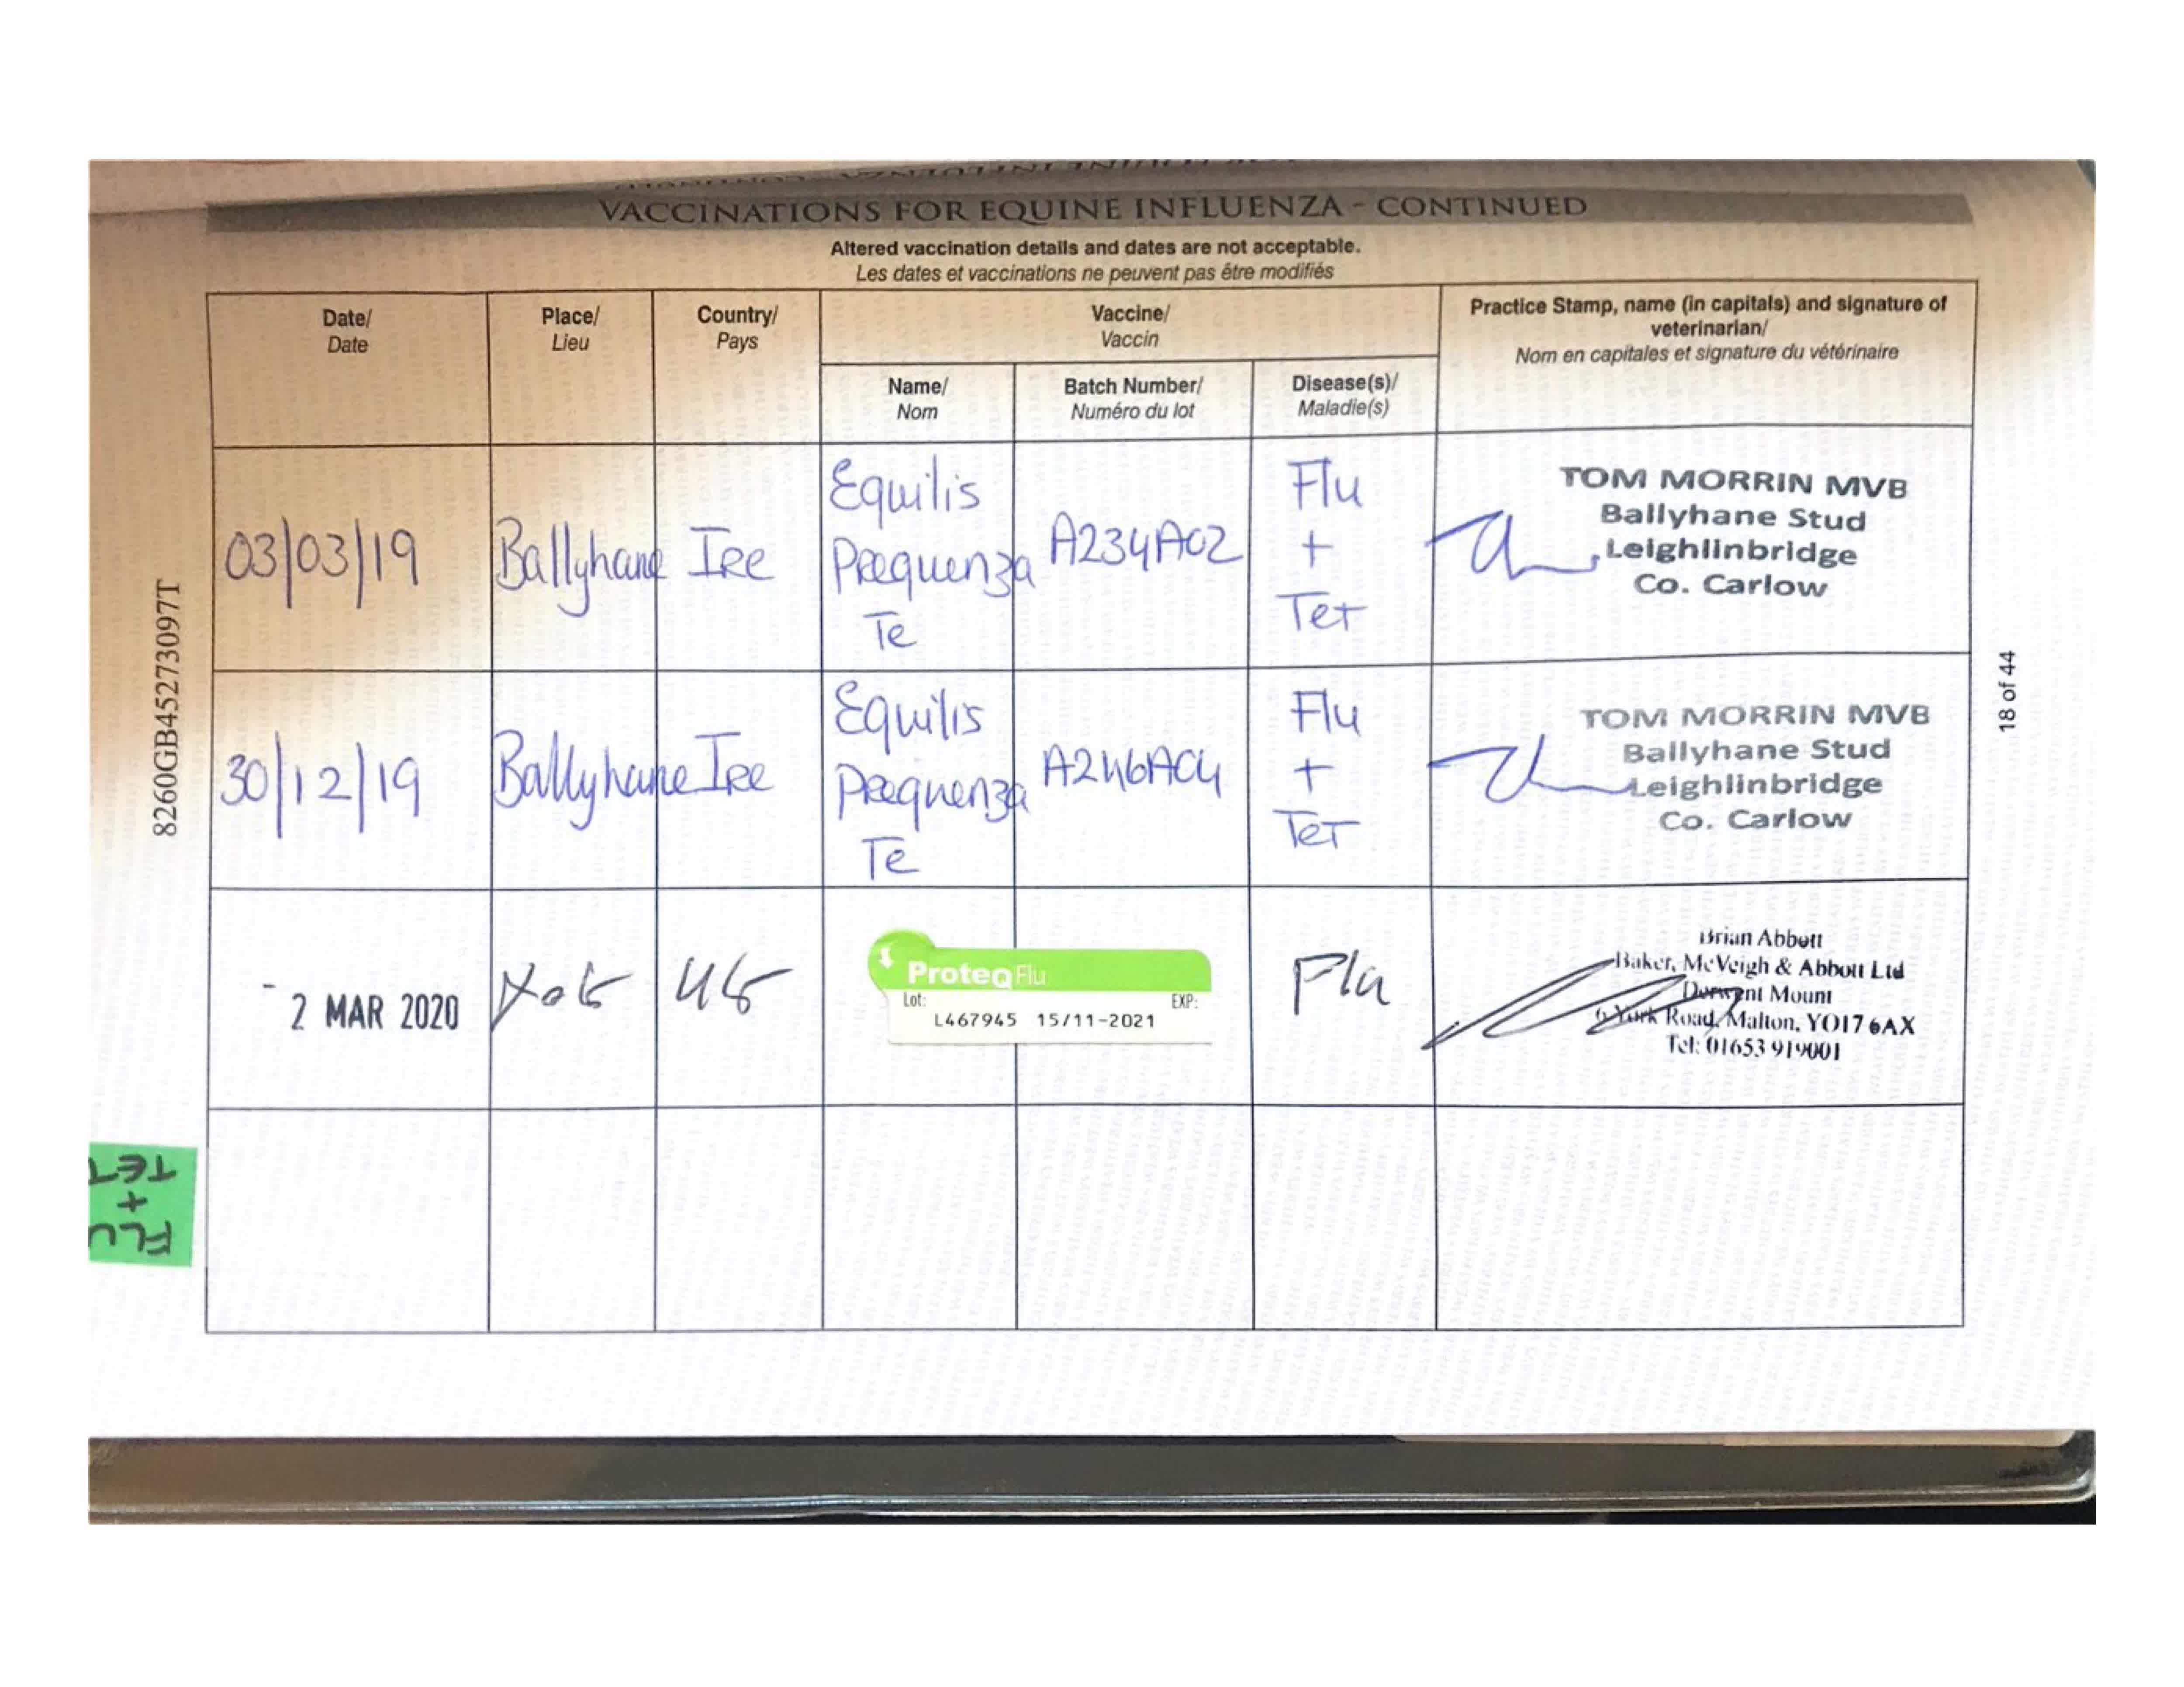 VACCINATIONS FOR EQUINE INFLUENZA - CONTINUED
Altered vaccination details and dates are not acceptable.
Les dates et vaccinations ne peuvent pas être modifiés
Date/
Date
Place/
Lieu
Country/
Pays
Vaccine/
Vaccin
Name/
Nom
Batch Number/
Numéro du lot
Disease(s)/
Maladie(s)
Practice Stamp, name (in capitals) and signature of
veterinarian/
Nom en capitales et signature du vétérinaire
03/03/19
Ballyhane
IRE
Equilis
Prequenza
Te
A234A02
Flu
+
Tet
TOM MORRIN MVB
Ballyhane Stud
Leighlinbridge
Co. Carlow
30/12/19
Ballyhane
IRE
Equilis
Prequenza
Te
A246A04
Flu
+
TeT
TOM MORRIN MVB
Ballyhane Stud
Leighlinbridge
Co. Carlow
- 2 MAR 2020
ProteqFlu
Lot:
EXP:
L467945 15/11-2021
Flu
Brian Abbott
Baker, McVeigh & Abbott Ltd
Derwent Mount
6 York Road, Malton, YO17 6AX
Tel: 01653 919001
8260GB45273097T
18 of 44
FLU
+
TET